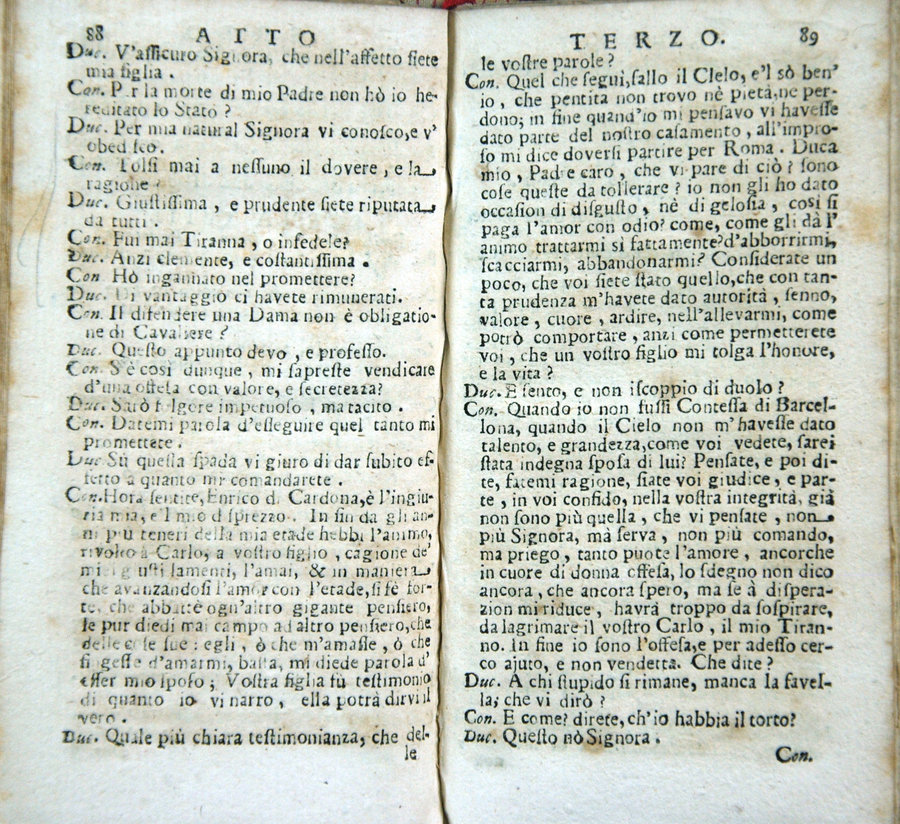 88 ATTO
Duc. V'assicuro Signora, che nell'affetto siete
mia figlia.
Con. Per la morte di mio Padre non hò io he-
reditato lo Stato?
Duc. Per mia natural Signora vi conosco, e v'
obedisco.
Con. Tolsi mai a nessuno il dovere, e la
ragione?
Duc. Giustissima, e prudente siete riputata
da tutti.
Con. Fui mai Tiranna, o infedele?
Duc. Anzi clemente, e costantissima.
Con. Hò ingannato nel promettere?
Duc. Di vantaggio ci havete rimunerati.
Con. Il difendere una Dama non è obligatio-
ne di Cavaliere?
Duc. Questo appunto devo, e professo.
Con. S'è così dunque, mi sapreste vendicare
d'una offesa con valore, e secretezza?
Duc. Sarò folgore impetuoso, ma tacito.
Con. Datemi parola d'esseguire quel tanto mi
promettete.
Duc. Sù questa spada vi giuro di dar subito ef-
fetto a quanto mi comandarete.
Con. Hora sentite, Enrico di Cardona, è l'ingiu-
ria mia, e'l mio disprezzo. In fin da gli an-
ni più teneri della mia etade hebbi l'animo,
rivolto à Carlo, a vostro figlio, cagione de'
miei giusti lamenti, l'amai, & in maniera
che avanzandosi l'amor con l'etade, si fè for-
te, che abbattè ogn'altro gigante pensiero,
se pur diedi mai campo ad altro pensiero, che
delle cose sue: egli, ò che m'amasse, ò che
fingesse d'amarmi, basta, mi diede parola d'
esser mio sposo; Vostra figlia fù testimonio
di quanto io vi narro, ella potrà dirvi il
vero.
Duc. Quale più chiara testimonianza, che del-
le
TERZO. 89
le vostre parole?
Con. Quel che seguì, sallo il Cielo, e'l sò ben'
io, che pentita non trovo nè pietà, ne per-
dono; in fine quand'io mi pensavo vi havesse
dato parte del nostro casamento, all'impro-
so mi dice doversi partire per Roma. Duca
mio, Padre caro, che vi pare di ciò? sono
cose queste da tollerare? io non gli ho dato
occasion di disgusto, nè di gelosia, così si
paga l'amor con odio? come, come gli dà l'
animo trattarmi sì fattamente? d'abborrirmi,
scacciarmi, abbandonarmi? Considerate un
poco, che voi siete stato quello, che con tan-
ta prudenza m'havete dato autorità, senno,
valore, cuore, ardire, nell'allevarmi, come
potrò comportare, anzi come permetterete
voi, che un vostro figlio mi tolga l'honore,
e la vita?
Duc. E sento, e non iscoppio di duolo?
Con. Quando io non fussi Contessa di Barcel-
lona, quando il Cielo non m'havesse dato
talento, e grandezza, come voi vedete, sarei
stata indegna sposa di lui? Pensate, e poi di-
te, fatemi ragione, siate voi giudice, e par-
te, in voi confido, nella vostra integrità, già
non sono più quella, che vi pensate, non
più Signora, mà serva, non più comando,
ma priego, tanto puote l'amore, ancorche
in cuore di donna offesa, lo sdegno non dico
ancora, che ancora spero, ma se à dispera-
zion mi riduce, havrà troppo da sospirare,
da lagrimare il vostro Carlo, il mio Tiran-
no. In fine io sono l'offesa, e per adesso cer-
co ajuto, e non vendetta. Che dite?
Duc. A chi stupido si rimane, manca la favel-
la; che vi dirò?
Con. E come? direte, ch'io habbia il torto?
Duc. Questo nò Signora.
Con.